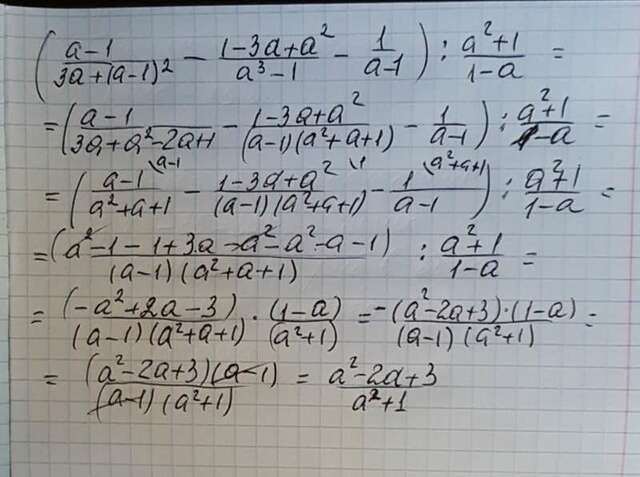 ( (a-1)/(3a+(a-1)²) - (1-3a+a²)/(a³-1) - 1/(a-1) ) : (a²+1)/(1-a) =
= ( (a-1)/(3a+a²-2a+1) - (1-3a+a²)/((a-1)(a²+a+1)) - 1/(a-1) ) : (a²+1)/(1-a) =
= ( (a-1)\a-1/(a²+a+1) - (1-3a+a²)\1/((a-1)(a²+a+1)) - 1\a²+a+1/(a-1) ) : (a²+1)/(1-a) =
= (a²-1-1+3a-a²-a²-a-1)/((a-1)(a²+a+1)) : (a²+1)/(1-a) =
= (-a²+2a-3)/((a-1)(a²+a+1)) · (1-a)/(a²+1) = -(a²-2a+3)·(1-a)/((a-1)(a²+1)) =
= (a²-2a+3)(a-1)/((a-1)(a²+1)) = (a²-2a+3)/(a²+1)